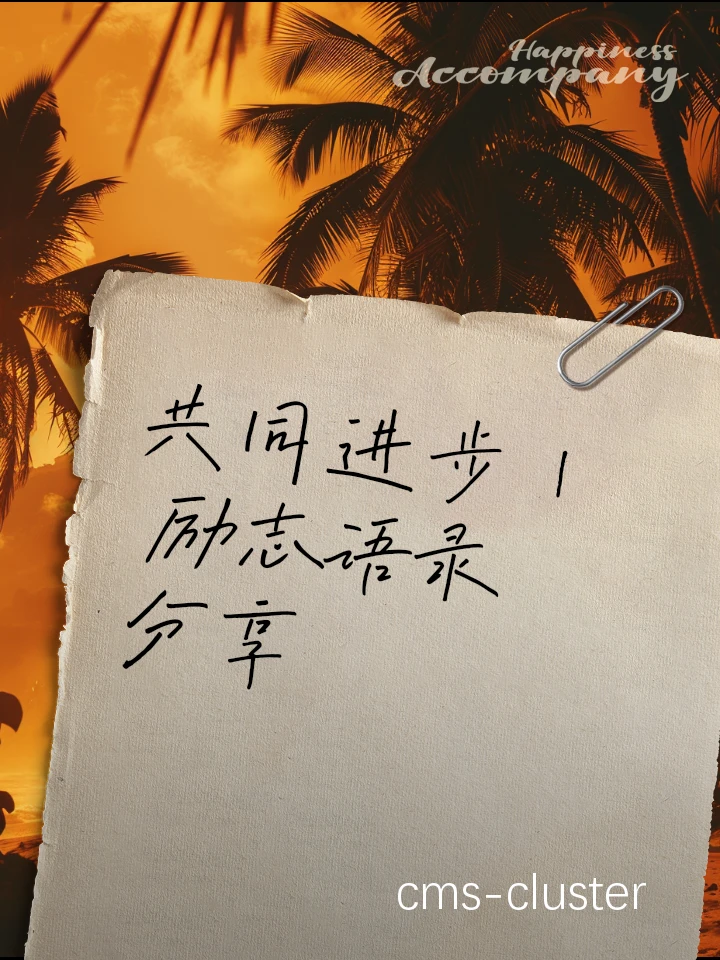 Happiness
Accompany
共同进步！
励志语录
分享
cms-cluster